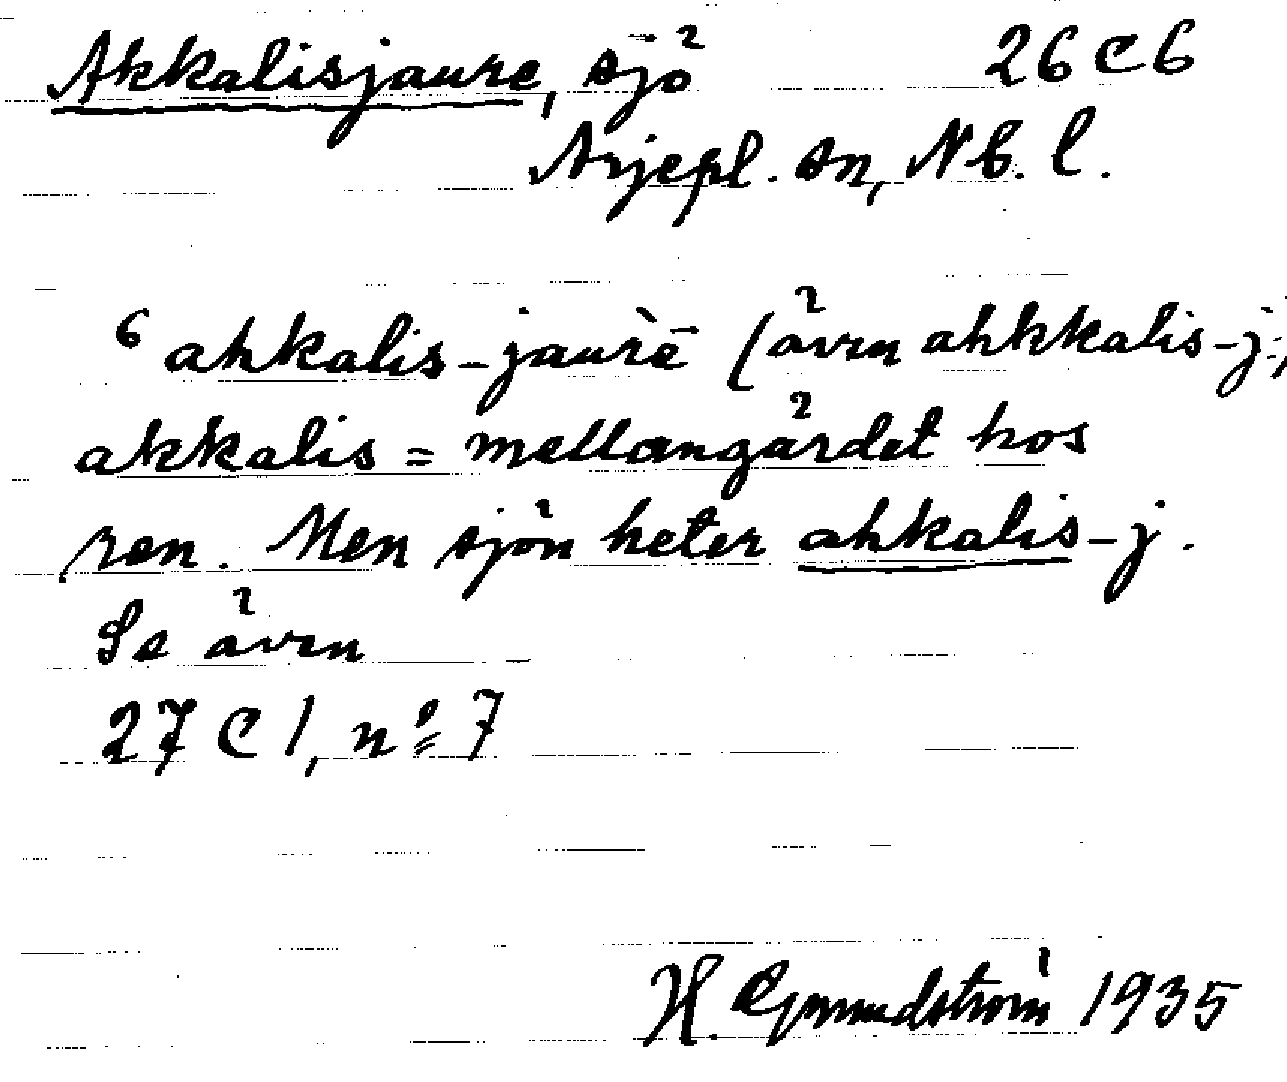 Akkalisjaure, sjö 26 C 6
Arjepl. sn, Nb. l.
6 ahkalis-jaurē (även ahkkalis-j.)
akkalis = mellangärdet hos
ren. Men sjön heter ahkalis-j.
Se även
27 C 1, nº 7
H. Grundström 1935